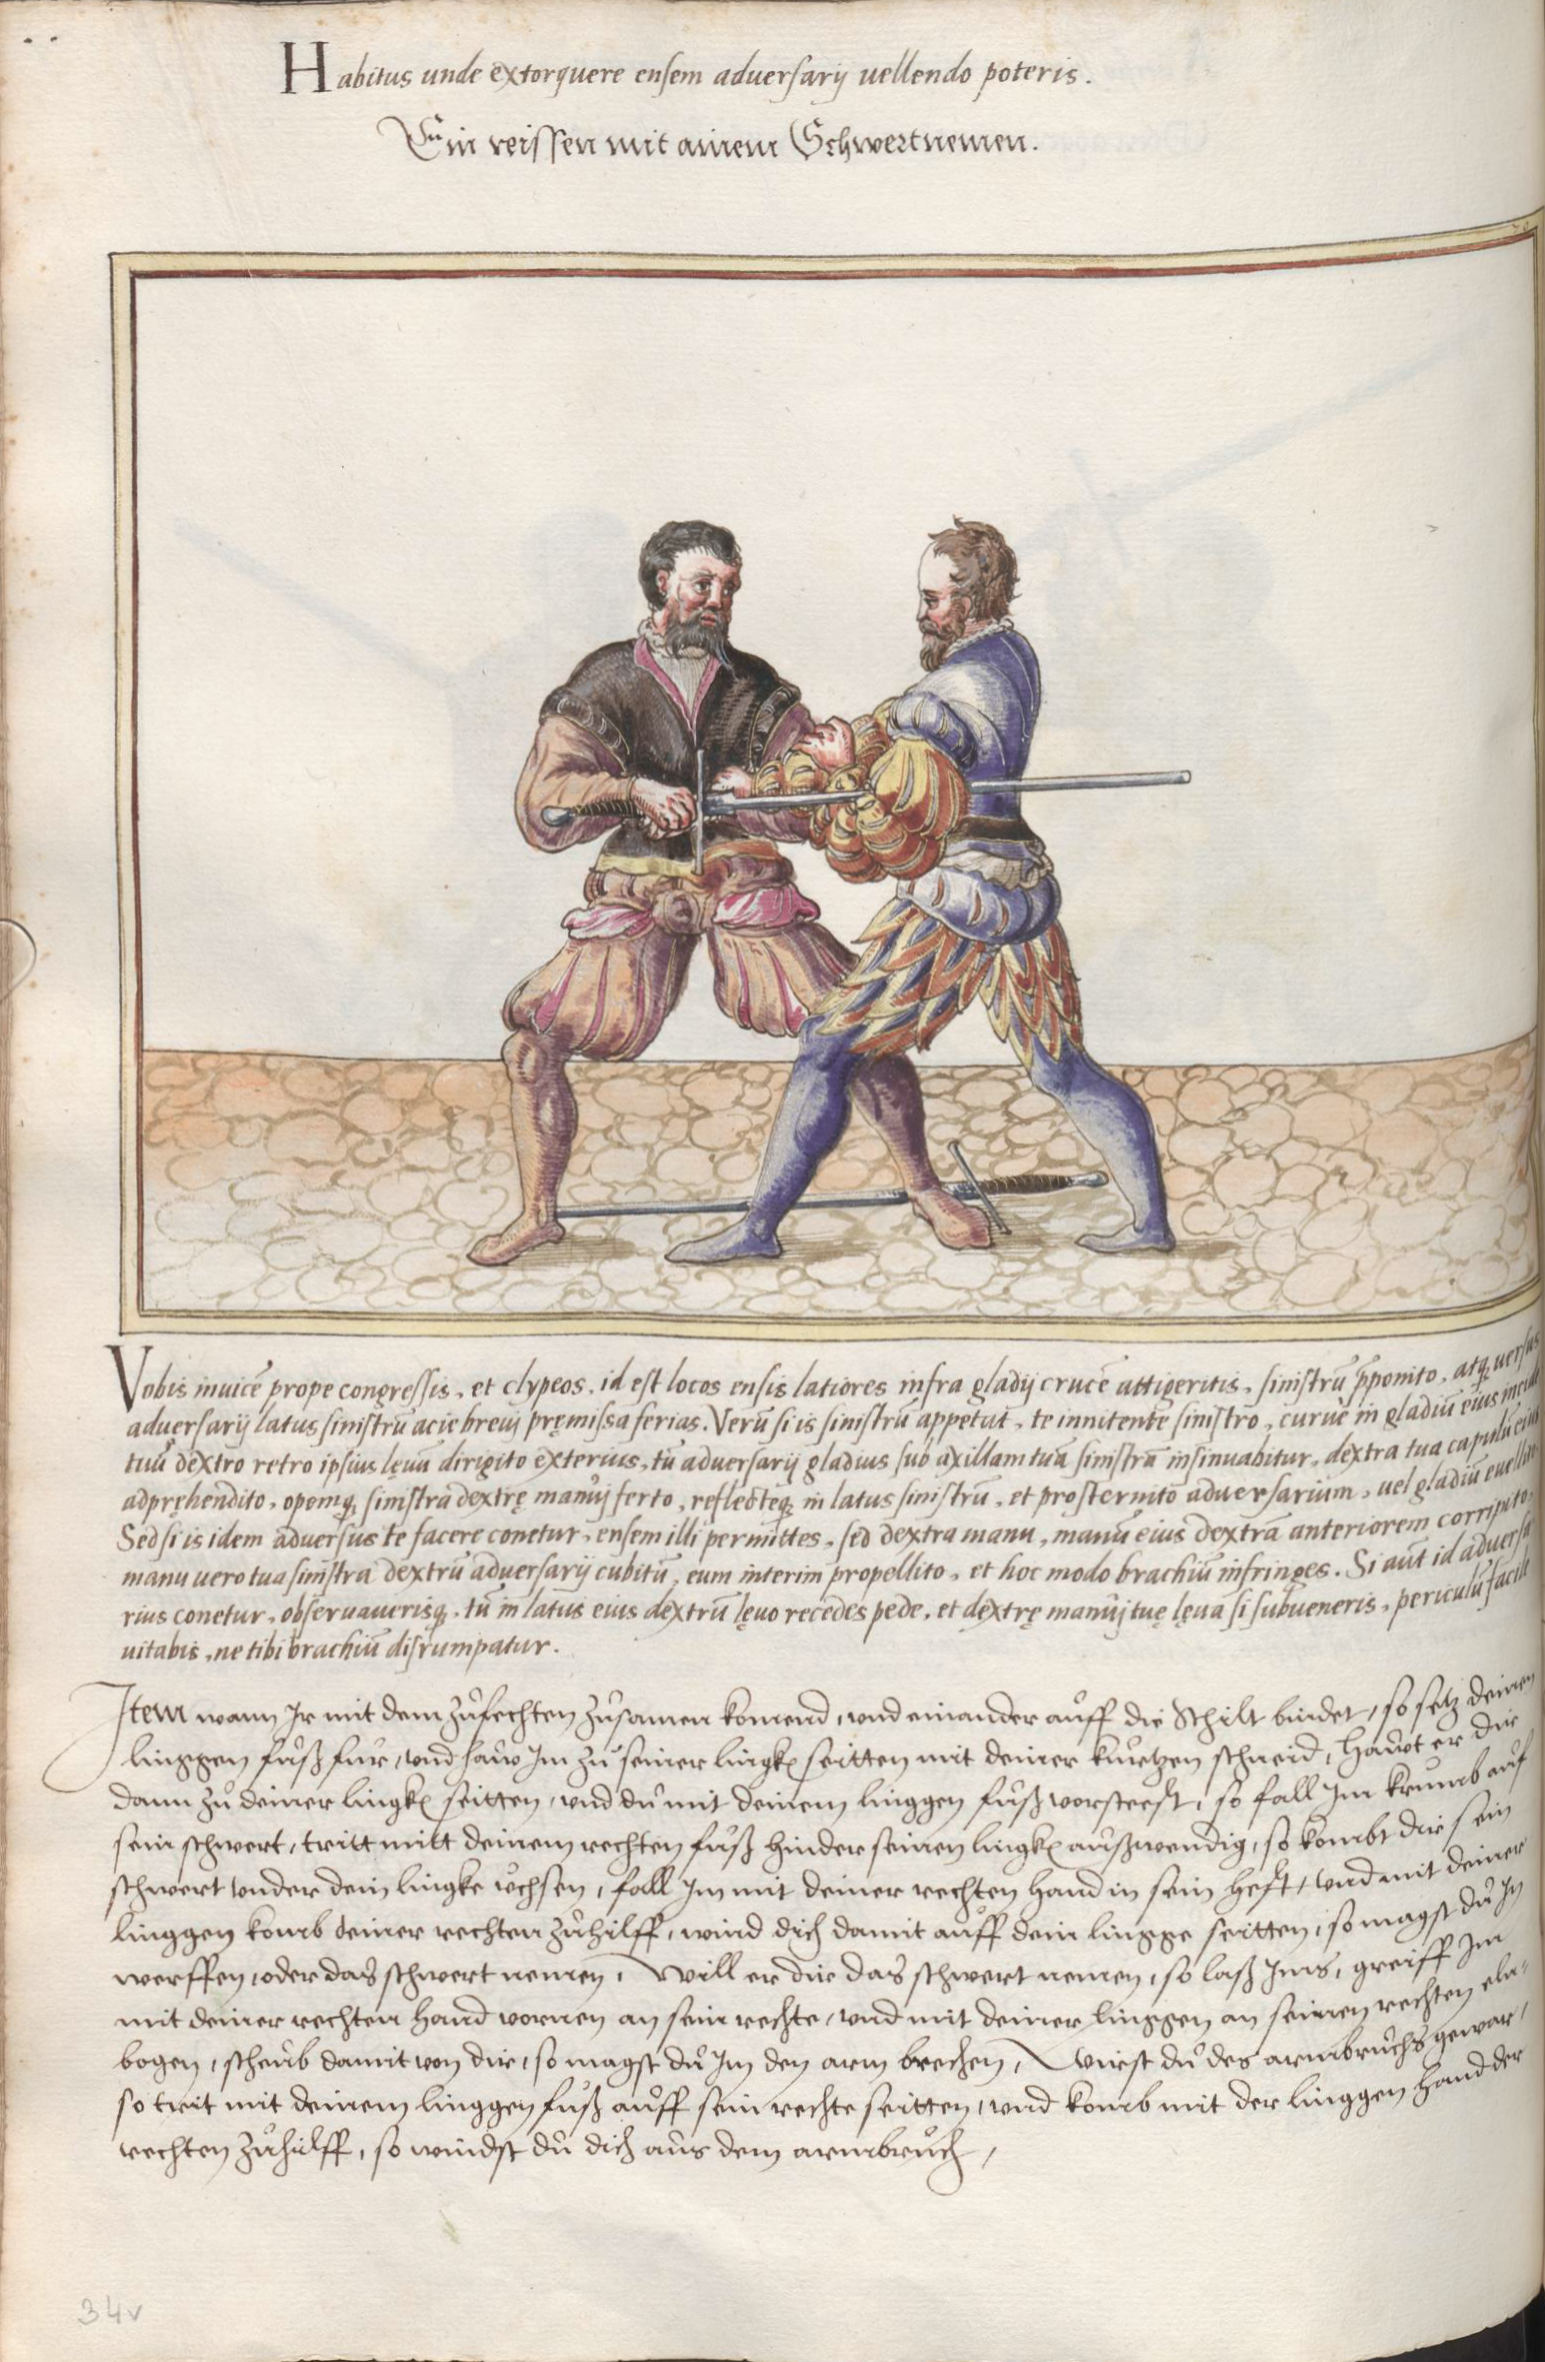 Habitus unde extorquere ensem adversarij vellendo poteris.
Ein reissen mit ainem Schwertnemen.
Vobis invicē prope congressis, et clypeos, id est locos ensis latiores infra gladij crucē attigeritis, sinistrū p̄ponito, atq; versus
adversarij latus sinistrū acie brevi pręmissa ferias. Verū si is sinistrū appetat, te innitente sinistro, curve in gladiū eius incide
tuū dextro retro ipsius lęvū dirigito exterius, tū adversarij gladius sub axillam tuā sinistrā insinuabitur, dextra tua capulū eius
adpręhendito, opemq; sinistra dextrę manuj ferto, reflecteq; in latus sinistrū, et prosternito adversarium, vel gladiū evellito.
Sed si is idem adversus te facere conetur, ensem illi permittes, sed dextra manu, manū eius dextrā anteriorem corripito,
manu vero tua sinistra dextrū adversarij cubitū, eum interim propellito, et hoc modo brachiū infringes. Si aūt id adversa
rius conetur, observaverisq; tū in latus eius dextrū lęvo recedes pede, et dextrę manuj tuę lęva si subveneris, periculū facile
vitabis, ne tibi brachiū disrumpatur.
Item wann Jr mit dem zůfechten zůsamen komend, vnd einander aůff die Schilt bindet, so setz deinen
linggen fůß für, vnd haw Jm zů seiner lingkn seitten mit deiner kurtzen schneid, Hawt er dir
dann zů deiner lingkn seitten, vnd dů mit deinem linggen fůß vorsteest, so fall Jm krumb aůf
sein schwert, tritt mitt deinem rechten fůß hinder seinen lingkn außwendig, so kombt dir sein
schwert vnder dein lingke ůchsen, fall Jm mit deiner rechten hand in sein hefft, vnd mit deiner
linggen komb deiner rechten zůhilff, wind dich damit aůff dein lingge seitten, so magst dů Jn
werffen, oder das schwert nemen, Will er dir das schwert nemen, so laß Jms, greiff Jm
mit deiner rechten hand vornen an sein rechte, vnd mit deiner linggen an seinen rechten eln-
bogen, scheub damit von dir, so magst dů Jm den arm brechen, Wirst dů des armbrůchs gewar,
so trit mit deinem linggen fůß aůff sein rechte seitten, vnd komb mit der linggen hand der
rechten zůhilff, so windst dů dich aůs dem armbrůch,
34v